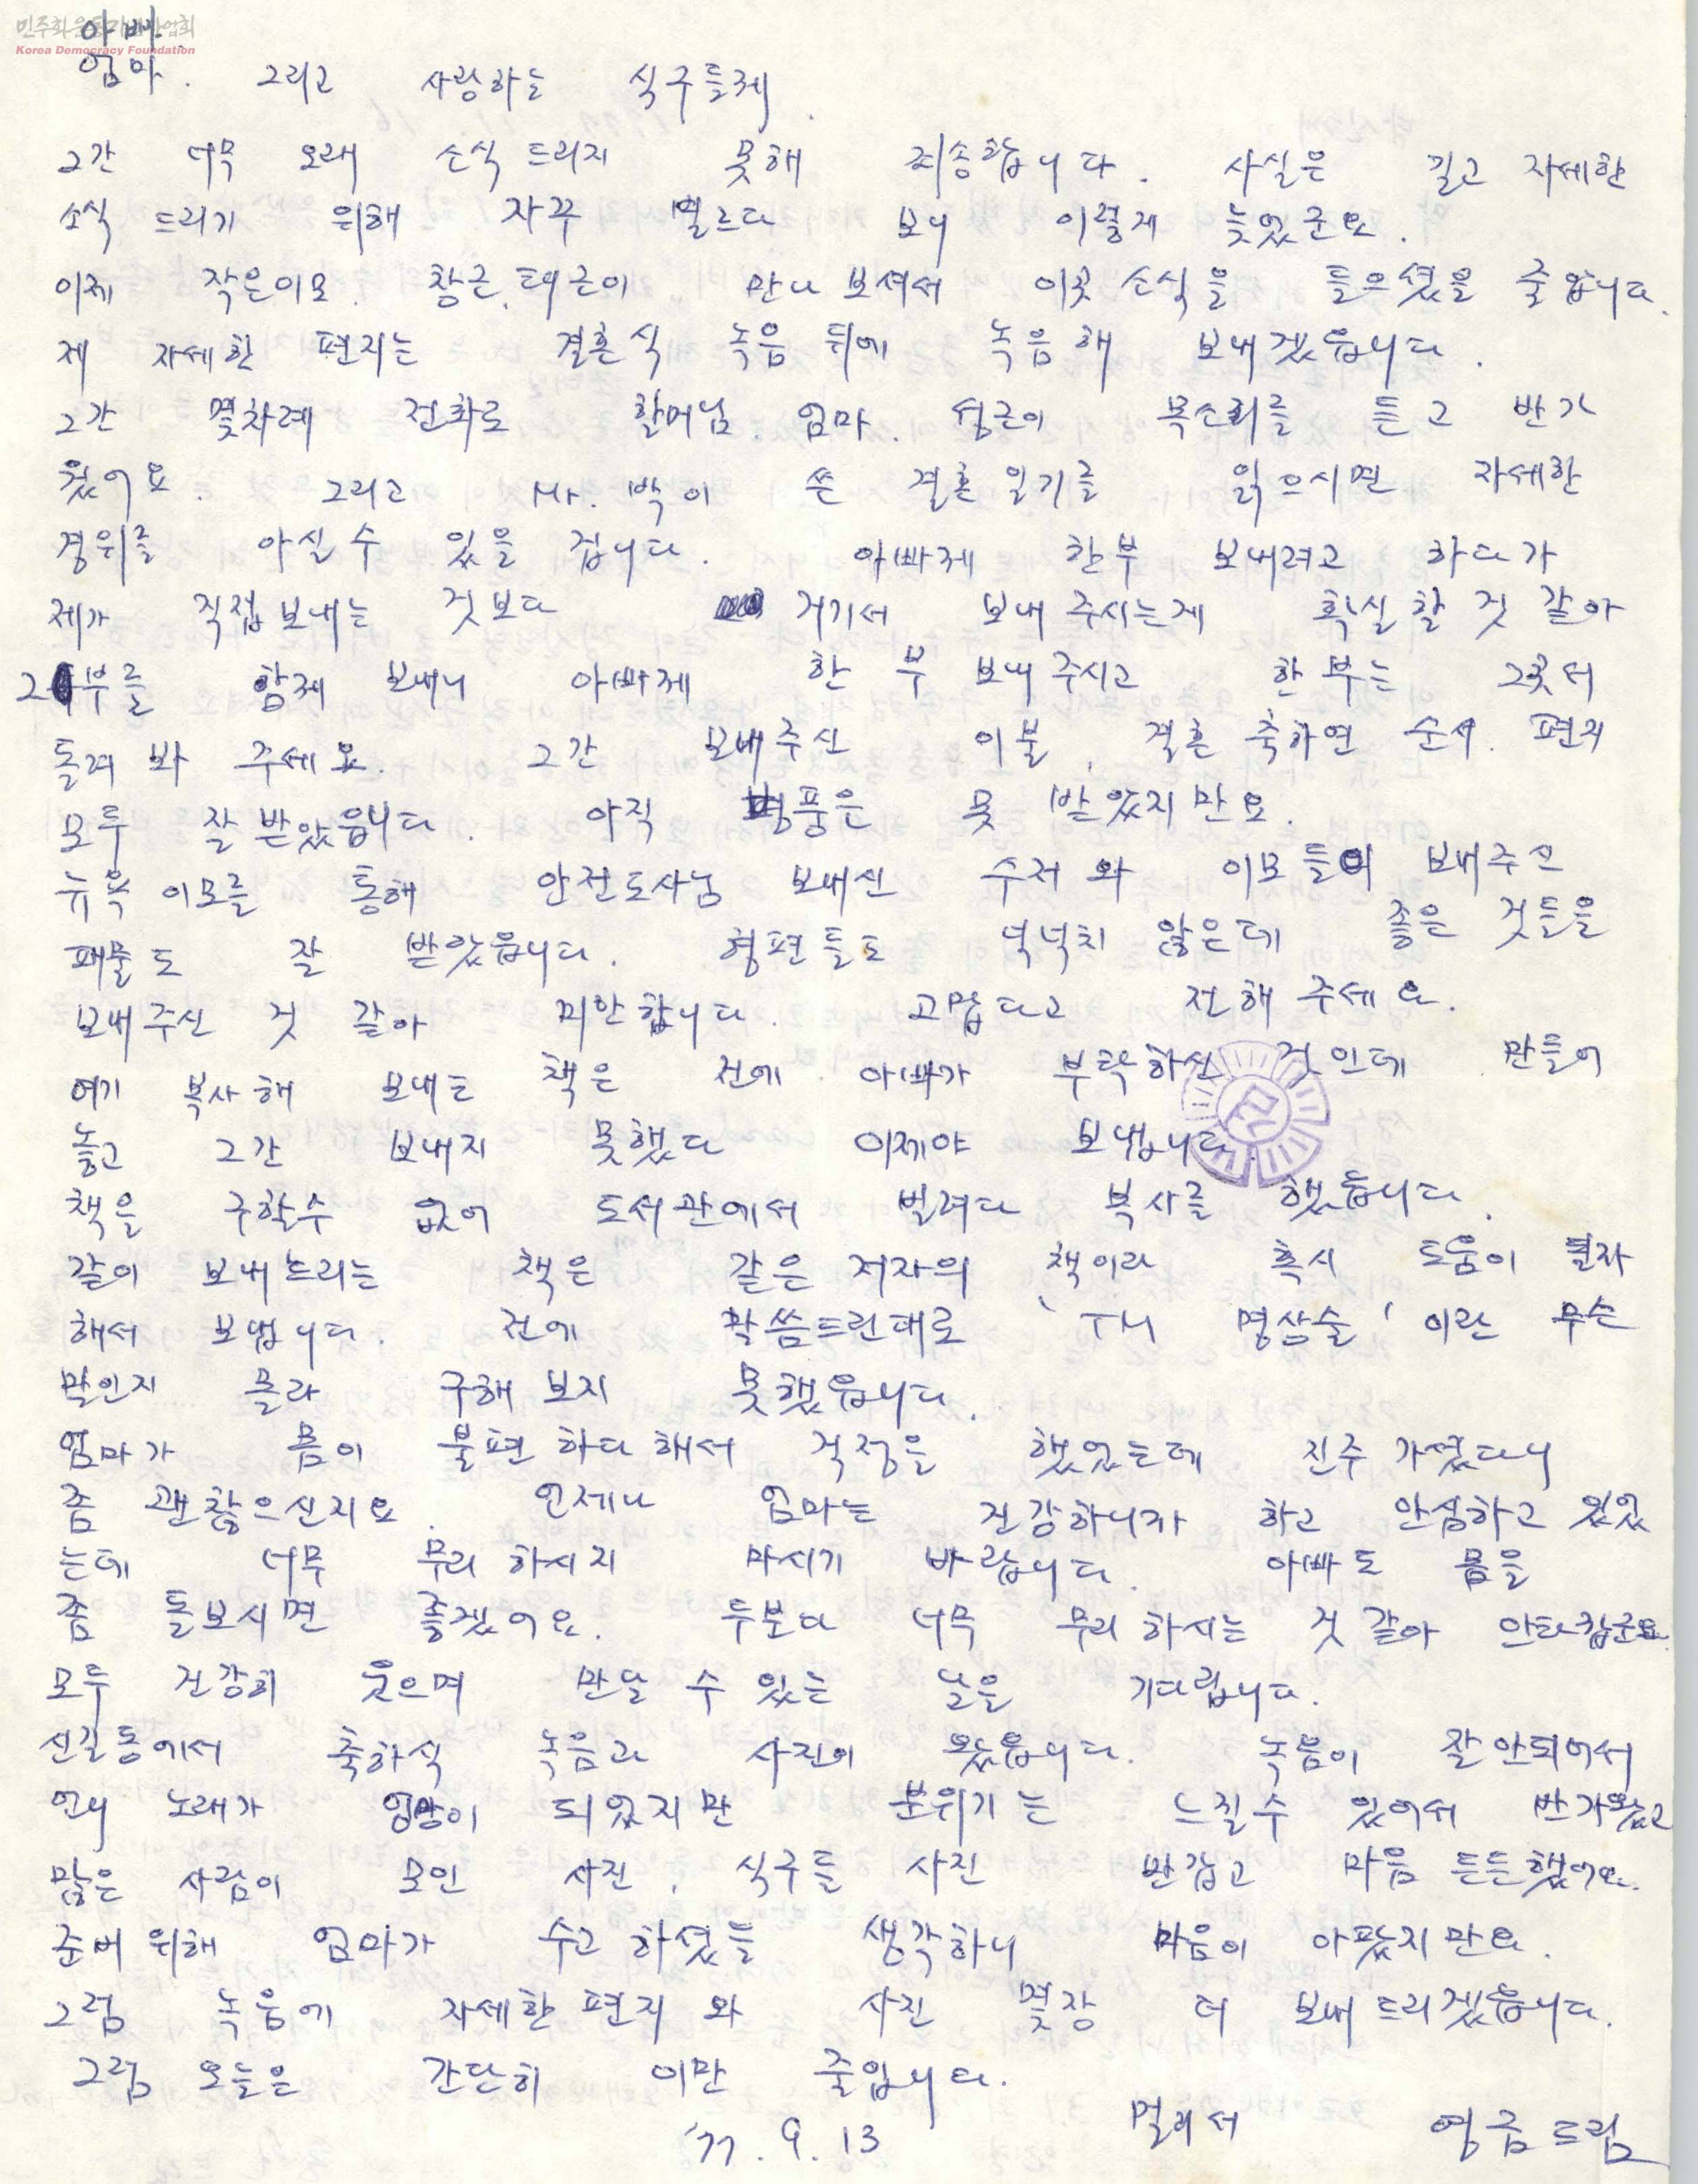 민주화운동기념사업회
Korea Democracy Foundation
아빠.
엄마. 그리고 사랑하는 식구들께.
그간 너무 오래 소식 드리지 못해 죄송합니다. 사실은 길고 자세한
소식 드리기 위해 자꾸 벼르다 보니 이렇게 늦었군요.
이제 작은이모. 창근, 태근이 만나 보셔서 이곳 소식을 들으셨을 줄 압니다.
제 자세한 편지는 결혼식 녹음 뒤에 녹음해 보내겠읍니다.
그간 몇차례 전화로 할머님. 엄마. 성근이 목소리를 듣고 반가
웠어요. 그리고 Mr. 박이 쓴 결혼 일기를 읽으시면 자세한
경위를 아실 수 있을 겁니다. 아빠께 한부 보내려고 하다가
제가 직접 보내는 것보다 거기서 보내 주시는게 확실할 것 같아
2부를 함께 보내니 아빠께 한 부 보내 주시고 한 부는 그곳서
돌려 봐 주세요. 그간 보내주신 이불, 결혼 축하연 순서. 편지
모두 잘 받았읍니다. 아직 병풍은 못 받았지만요.
뉴욕 이모를 통해 안전도사님 보내신 수저와 이모들이 보내주신
패물도 잘 받았읍니다. 형편들도 넉넉치 않은데 좋은 것들을
보내주신 것 같아 미안합니다. 고맙다고 전해 주세요.
여기 복사해 보내는 책은 전에 아빠가 부탁하신 것인데 만들어
놓고 그간 보내지 못했다 이제야 보냅니다.
책을 구할수 없어 도서관에서 빌려다 복사를 했읍니다.
같이 보내드리는 책은 같은 저자의 책이라 혹시 도움이 될까
해서 보냅니다. 전에 말씀드린대로 'TM 명상술' 이란 무슨
말인지 몰라 구해 보지 못했읍니다.
엄마가 몸이 불편하다 해서 걱정을 했었는데 진주 가셨다니
좀 괜찮으신지요. 언제나 엄마는 건강하니까 하고 안심하고 있었
는데 너무 무리 하시지 마시기 바랍니다. 아빠도 몸을
좀 돌보시면 좋겠어요. 두분다 너무 무리 하시는 것 같아 안타깝군요.
모두 건강히 웃으며 만날 수 있는 날을 기다립니다.
신길동에서 축하식 녹음과 사진이 왔읍니다. 녹음이 잘 안되어서
언니 노래가 엉망이 되었지만 분위기는 느낄수 있어서 반가웠고
많은 사람이 모인 사진, 식구들 사진 반갑고 마음 든든했어요.
준비 위해 엄마가 수고 하셨을 생각하니 마음이 아팠지만요.
그럼 녹음에 자세한 편지와 사진 몇장 더 보내 드리겠읍니다.
그럼 오늘은 간단히 이만 줄입니다.
'77. 9. 13 멀리서 영금 드림